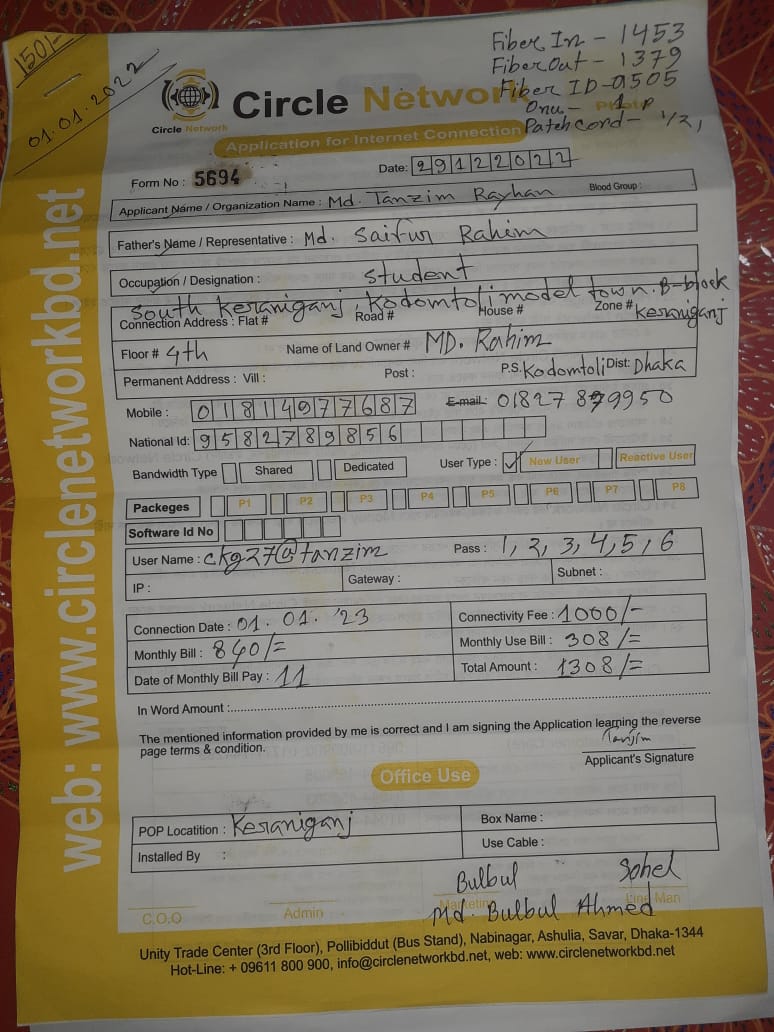 1501/-
01.01.2022
Fiber In - 1453
Fiber Out - 1379
Fiber ID - 0505
Onu - 1 P
Patch cord - 1/2,
Circle Network
Circle Network
Application for Internet Connection
Form No : 5694
Date: 29122022
Applicant Name / Organization Name : Md. Tanzim Rayhan Blood Group :
Father's Name / Representative : Md. Saifur Rahim
Occupation / Designation : Student
South Keraniganj, Kodomtoli model town. B-block
Connection Address : Flat # Road # House # Zone # Keraniganj
Floor # 4th Name of Land Owner # MD. Rahim
Permanent Address : Vill : Post : P.S. Kodomtoli Dist: Dhaka
Mobile : 01814977687 E-mail: 01827 879950
National Id: 9582789856
Bandwidth Type Shared Dedicated User Type : ✓ New User Reactive User
Packeges P1 P2 P3 P4 P5 P6 P7 P8
Software Id No
User Name : ckg27@tanzim Pass : 1, 2, 3, 4, 5, 6
IP : Gateway : Subnet :
Connection Date : 01. 01. '23 Connectivity Fee : 1000/-
Monthly Bill : 840/= Monthly Use Bill : 308/=
Date of Monthly Bill Pay : 11 Total Amount : 1308/=
In Word Amount :
The mentioned information provided by me is correct and I am signing the Application learning the reverse
page terms & condition.
Tanjim
Applicant's Signature
Office Use
POP Locatition : Keraniganj Box Name :
Installed By : Use Cable :
Bulbul Sohel
C.O.O Admin Marketing Line Man
Md. Bulbul Ahmed
Unity Trade Center (3rd Floor), Pollibiddut (Bus Stand), Nabinagar, Ashulia, Savar, Dhaka-1344
Hot-Line: + 09611 800 900, info@circlenetworkbd.net, web: www.circlenetworkbd.net
web: www.circlenetworkbd.net